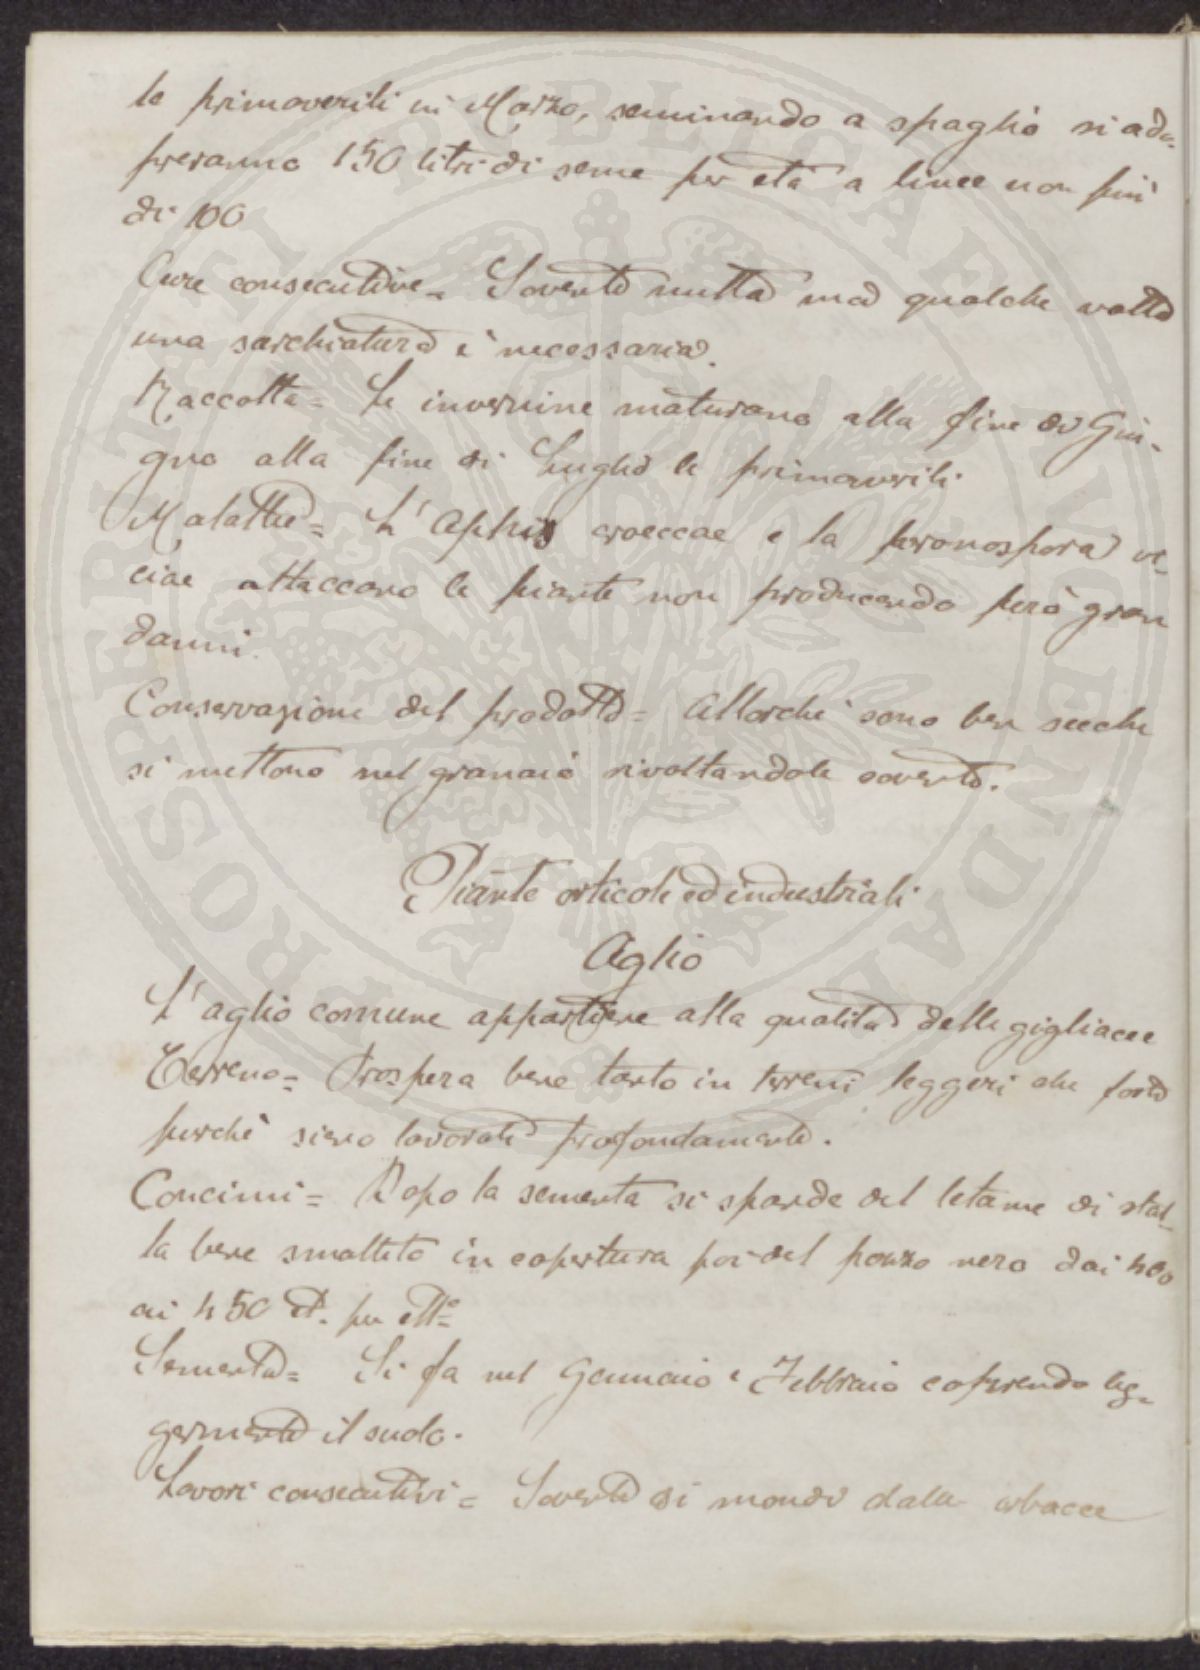 le primaverili in Marzo, seminando a spaglio si ado-
preranno 150 litri di seme per età a linee non più
di 100
Cure consecutive = Sovente nulla ma qualche volta
una sarchiatura è necessaria.
Raccolta = Le invernine maturano alla fine di Giu-
gno alla fine di Luglio le primaverili.
Malattie = L'Aphis craeccae e la peronospora vi-
ciae attaccano le piante non producendo però gran
danni.
Conservazione del prodotto = Allorché sono ben secche
si mettono nel granaio rivoltandole sovente.
Piante orticole ed industriali
Aglio
L'aglio comune appartiene alla qualità delle gigliacee
Terreno = Prospera bene tanto in terreni leggeri che forti
purchè sieno lavorati profondamente.
Concimi = Dopo la sementa si spande del letame di stal-
la bene smaltito in copertura poi del pozzo nero dai 400
ai 450 et. per ett.o
Sementa = Si fa nel Gennaio e Febbraio coprendo leg-
germente il suolo.
Lavori consecutivi = Sovente si mondi dalle erbacee
PROSPERITATI PUBLICAE AUGENDAE